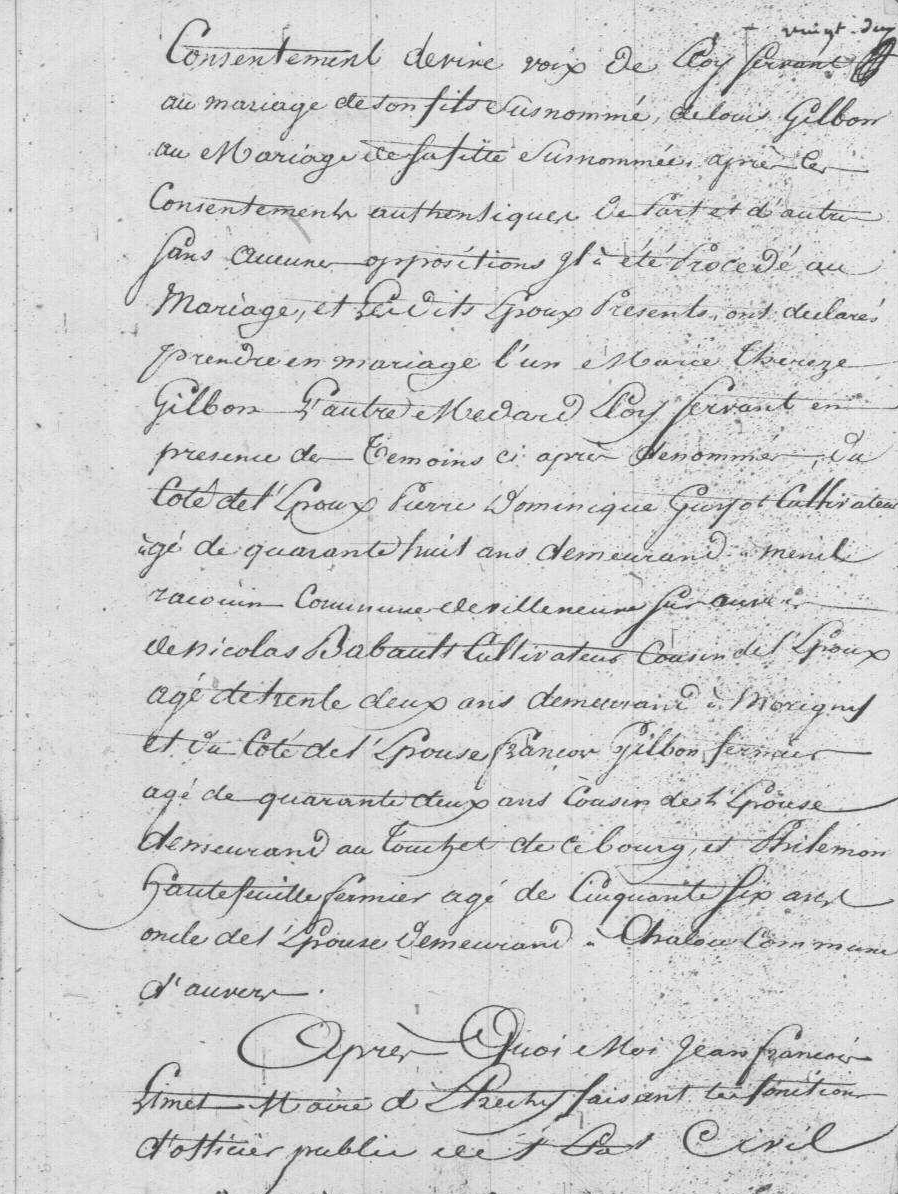 vingt-deux
Consentement de vive voix de Eloy Servant
au mariage de son fils susnommé, de louis Gilbon
au Mariage de sa fille Surnommée, après les
Consentements authentiques de Part et d'autre
Sans aucunes oppositions Jl a été Procedé au
Mariage, et Les dits Epoux Presents, ont declarés
prendre en mariage l'un Marie Thereze
Gilbon L'autre Medard Eloy Servant en
presence des Temoins ci après denommés, du
Coté de l'Epoux Pierre Dominique Guyot Cultivateur
agé de quarante huit ans demeurand a menil
racouin Commune de villeneuve sur auvers
de nicolas Babault Cultivateur Cousin de l'Epoux
agé de trente deux ans demeurand à Morigny
et du Coté de l'Epouse françois Gilbon fermier
agé de quarante deux ans Cousin de l'Epouse
demeurand au Touchet de ce bourg, et Philemon
hautefeuille fermier agé de Cinquante Six ans
oncle de l'Epouse demeurand a Chalou Commune
d'auvers.
Après Quoi Moi Jean françois
Maire d'Etrechy faisant les fonctions
d'officier public de l'Etat Civil